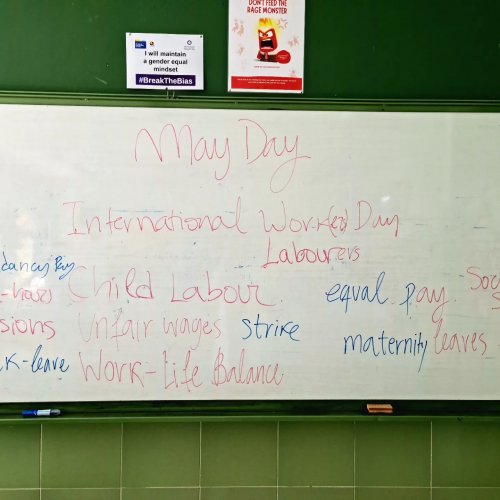 I will maintain
a gender equal
mindset
#BreakTheBias
DON'T FEED THE
RAGE MONSTER
May Day
International Worker Day
Labourers
dancy Pay
Child Labour.
equal pay.
Soc
sions Unfair wages strike
maternity leaves
k-leave Work-Life Balance